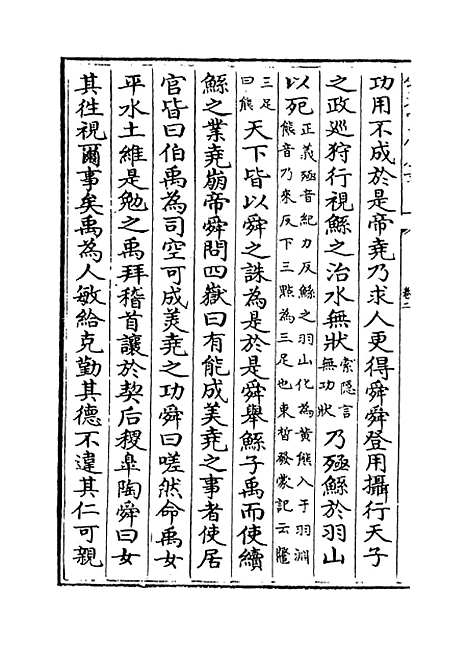 卷二
功用不成於是帝堯乃求人更得舜舜登用攝行天子
之政巡狩行視鯀之治水無狀索隱言無功狀乃殛鯀於羽山
以死正義殛音紀力反鯀之羽山化為黃熊入于羽淵熊音乃來反下三㸃為三足也束晳發蒙記云鼈
三足曰熊天下皆以舜之誅為是於是舜舉鯀子禹而使續
鯀之業堯崩帝舜問四嶽曰有能成美堯之事者使居
官皆曰伯禹為司空可成美堯之功舜曰嗟然命禹女
平水土維是勉之禹拜稽首讓於契后稷皋陶舜曰女
其徃視爾事矣禹為人敏給克勤其德不違其仁可親